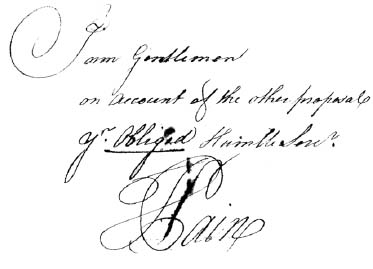 I am Gentlemen
on account of the other proposals
yr. Obliged Humble Servr.
T Pain